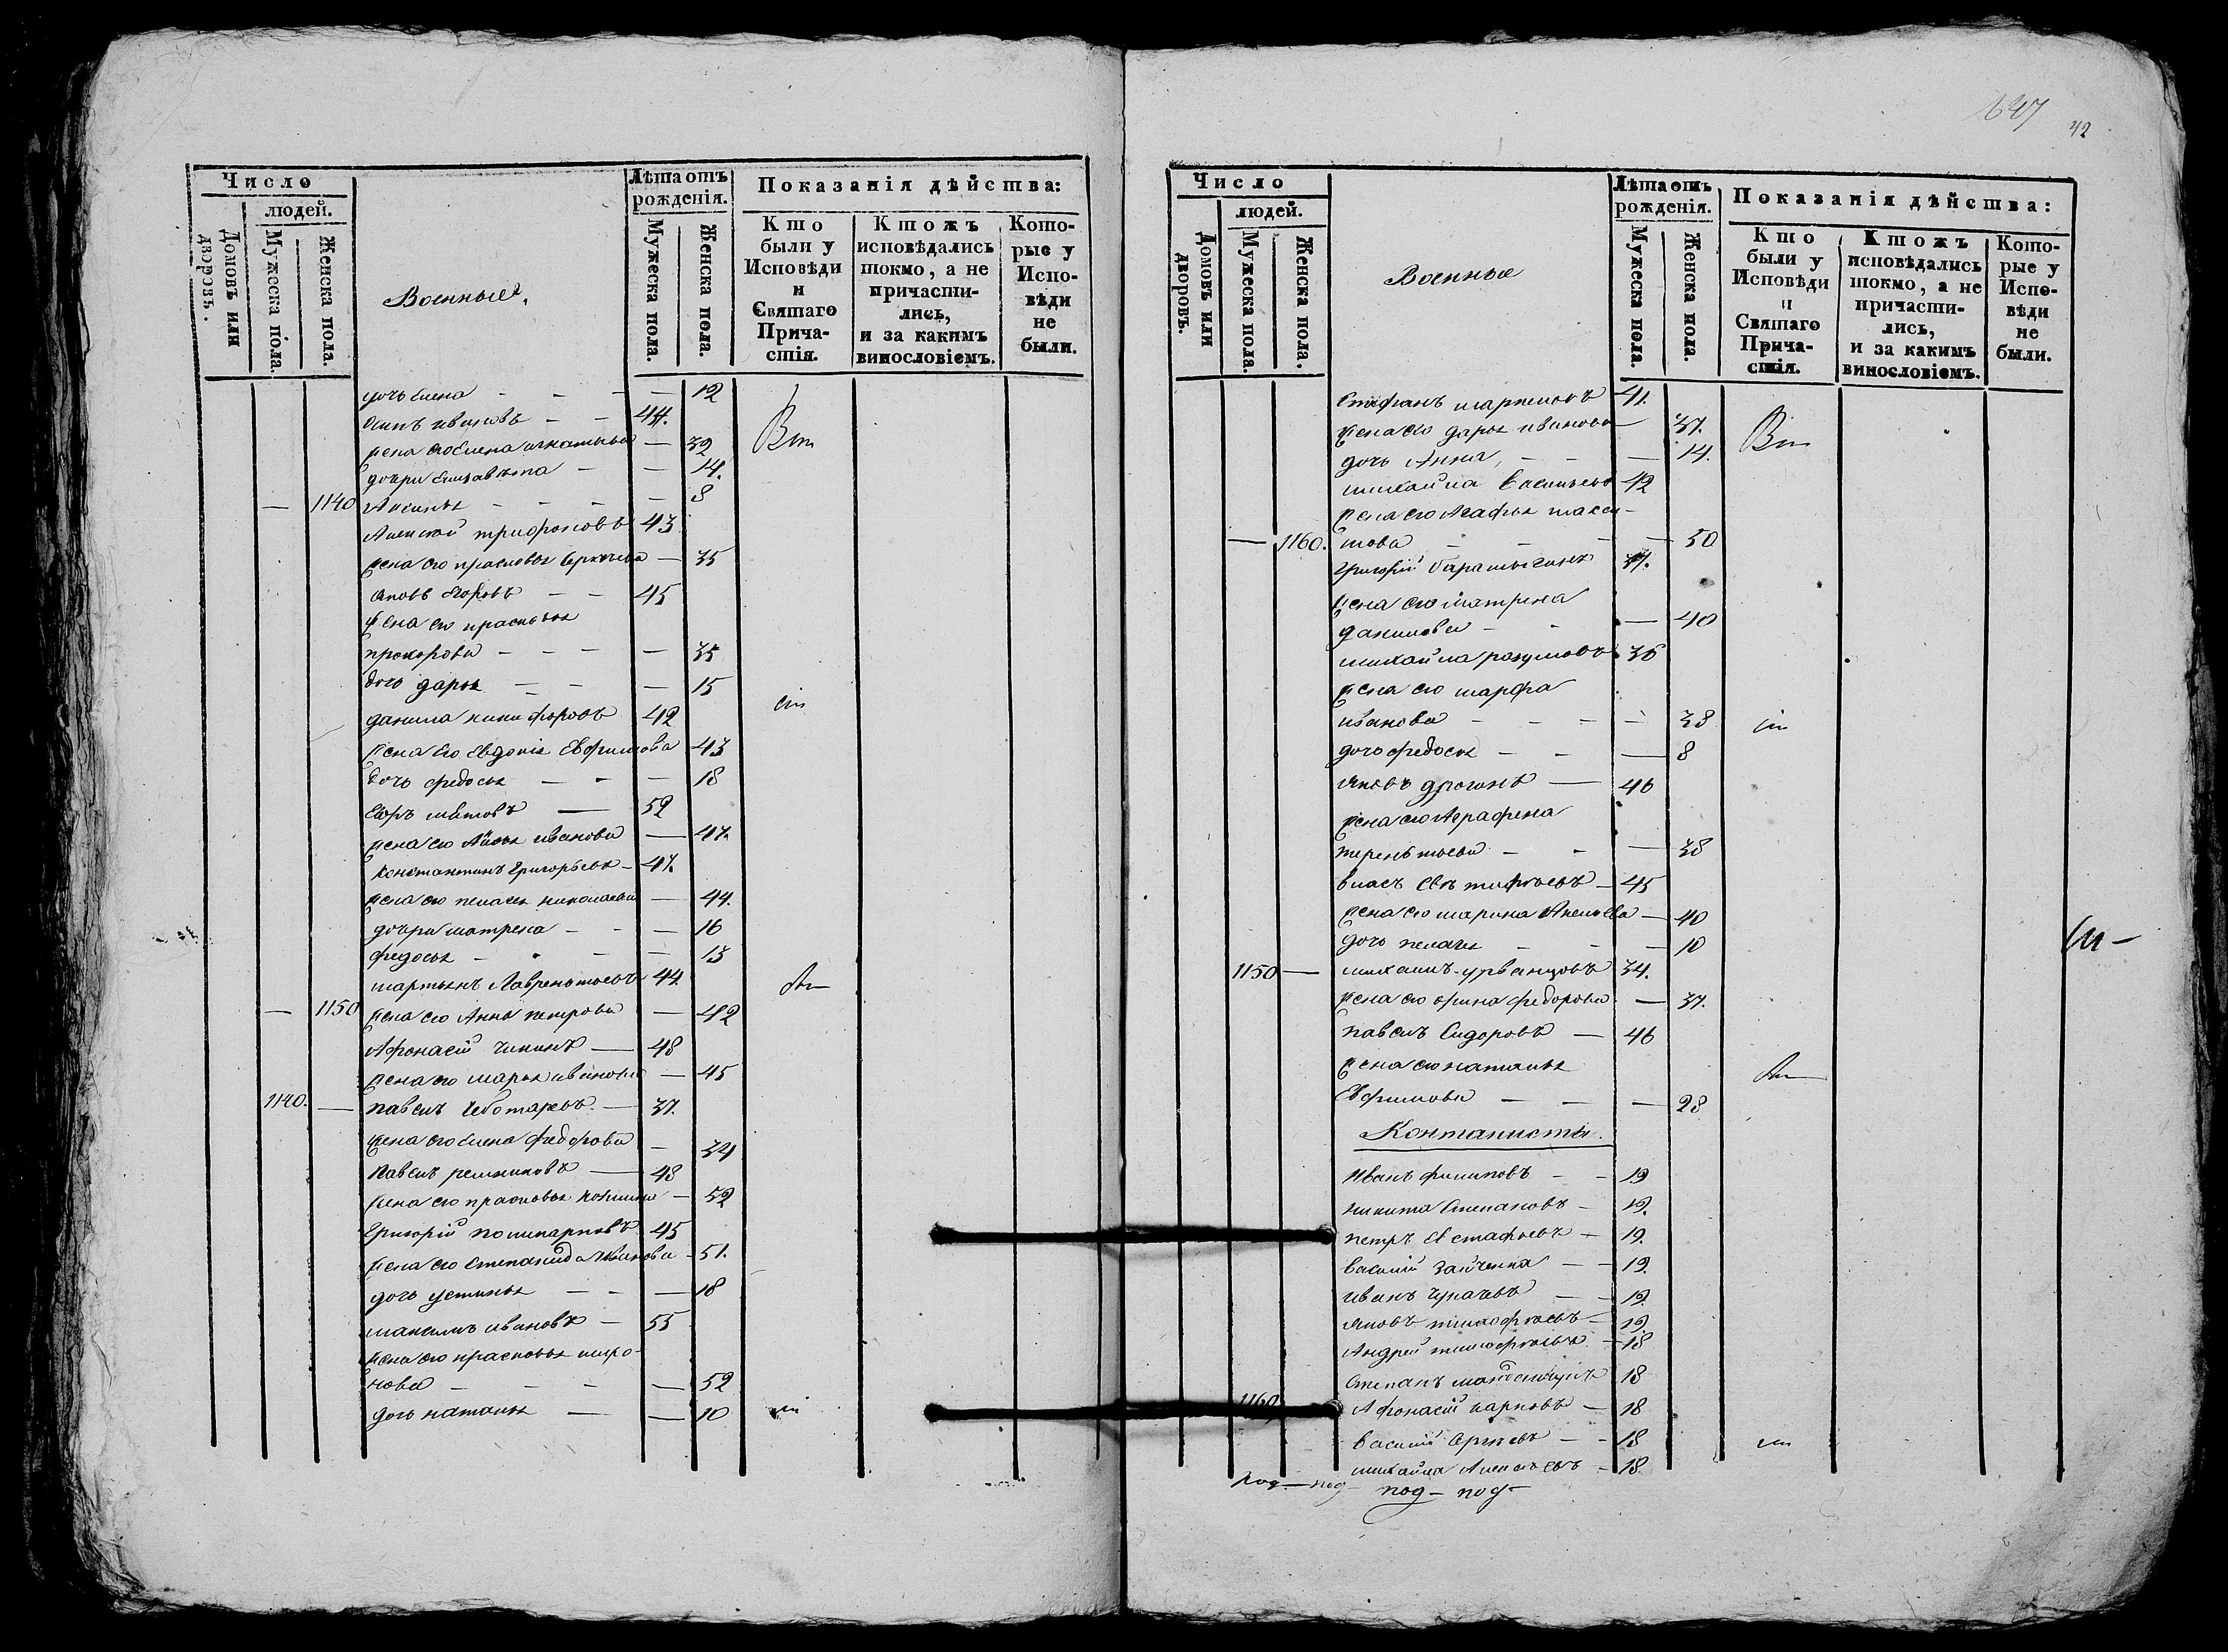 Число
людей.
Домовъ или дворовъ.
Мужеска пола.
Женска пола.
Военные
Лѣта отъ рожденія.
Мужеска пола.
Женска пола.
Показанія дѣйства:
Кто были у Исповѣди и Святаго Причастія.
Ктожъ исповѣдались токмо, а не причастились, и за какимъ винословіемъ.
Которые у Исповѣди не были.
дочь Елена — 12
Осипъ Ивановъ — 44.
жена его Елена Игнатьева — 32
дочери Елизавета — 14.
— 1140 Аксинья — 8
Алексей Трифоновъ 43
жена его Прасковья — 35
Яковъ Егоровъ — 45
жена его Прасковья
Прохорова — 35
дочь Дарья — 15
Данила Никифоровъ 42
жена его Евдокія Ефимова 43
дочь Федосья — 18
Егоръ — 52
жена его Иванова — 47.
Константинъ Григорьевъ — 47.
жена его Пелагея Николаева — 44.
дочери Матрена — 16
Федосья — 13
Мартынъ Лаврентьевъ 44
— 1150 жена его Анна Петрова — 42
Афонасій — 48
жена его Марья Иванова — 45
1140. — Павелъ Чеботаревъ — 37.
жена его Елена Федорова — 34
Павелъ Решетниковъ — 48
жена его Прасковья — 52
Григорій Поликарповъ 45
жена его Степанида Иванова — 51.
дочь Устинья — 18
Максимъ Ивановъ — 55
жена его Прасковья Миро-
нова — 52
дочь Наталья — 10
647
42
Число
людей.
Домовъ или дворовъ.
Мужеска пола.
Женска пола.
Военные
Лѣта отъ рожденія.
Мужеска пола.
Женска пола.
Показанія дѣйства:
Кто были у Исповѣди и Святаго Причастія.
Ктожъ исповѣдались токмо, а не причастились, и за какимъ винословіемъ.
Которые у Исповѣди не были.
Стефанъ 41.
жена его Дарья Иванова — 37.
дочь Анна, — 14.
Михайла Васильевъ 42
жена его Агафья Макси-
— 1160. мова — 50
Григорій 37.
жена его Матрена
Данилова — 40
Михайла Разумовъ 36
жена его Марфа
Иванова — 38
дочь Федосья — 8
Яковъ — 46
жена его Аграфена
Терентьева — 38
Власъ — 45
жена его Марина Алексеева — 40
дочь Пелагея — 10
1150 — Михаилъ Урванцовъ 34.
жена его Орина Федорова — 37.
Павелъ Сидоровъ — 46
жена его Наталья
Ефимова — 28
Кантонисты.
Иванъ Филиповъ — 19
Никита Степановъ — 19.
Петръ Евстафьевъ — 19.
Василій Зайченка — 19.
Иванъ — 19.
Яковъ Тимофѣевъ — 19
Андрей Тимофѣевъ — 18
Степанъ 18
1160 Афонасій Карповъ — 18
Василій Сергѣевъ — 18
Михайла Алексѣевъ — 18.
под — под —